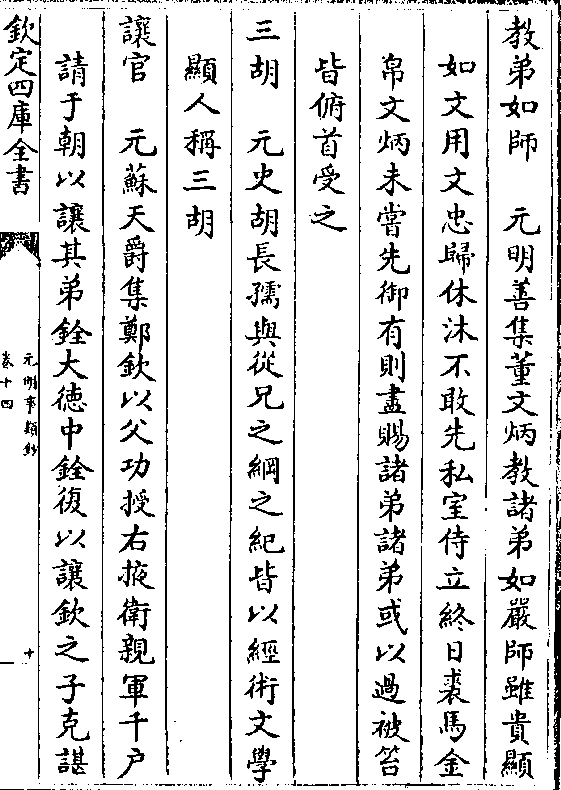 教弟如師　元明善集董文炳教諸弟如嚴師雖貴顯
如文用文忠歸休沐不敢先私室侍立終日裘馬金
帛文炳未嘗先御有則盡賜諸弟諸弟或以過被笞
皆俯首受之
三胡　元史胡長孺與從兄之綱之紀皆以經術文學
顯人稱三胡
讓官　元蘇天爵集鄭欽以父功授右掖衛親軍千户
請于朝以讓其弟銓大徳中銓復以讓欽之子克諶
欽定四庫全書
元明事類鈔
卷十四
十